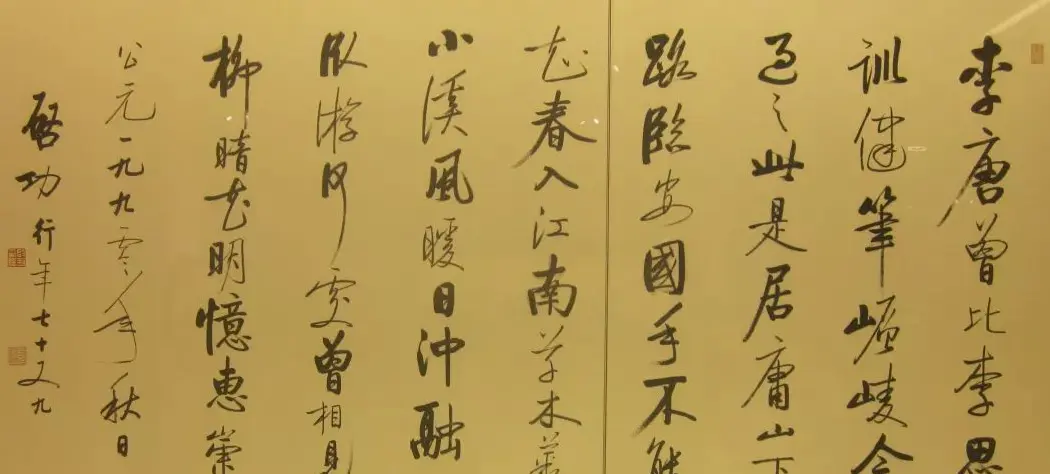 李唐曾比李思
訓健筆崚今
過之此是居庸山下
路臨安國手不能
花春入江南草木
小溪風暖日沖融
臥游何處曾相見
柳暗花明憶惠崇
公元一九九零年秋日
啓功行年七十又九